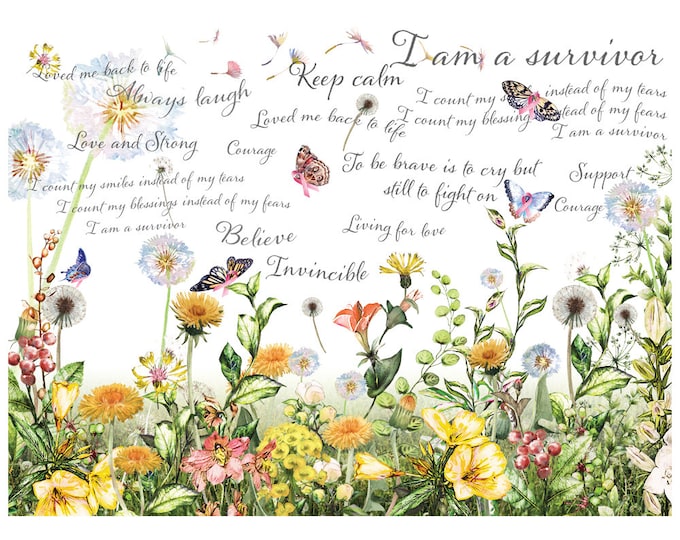 I am a survivor
Loved me back to life
Keep calm
Always laugh
I count my s instead of my tears
Loved me back to life
I count my blessing stead of my fears
I am a survivor
Love and Strong
Courage
To be brave is to cry but
still to fight on
Support
I count my smiles instead of my tears
I count my blessings instead of my fears
Courage
I am a survivor
Believe
Living for love
Invincible